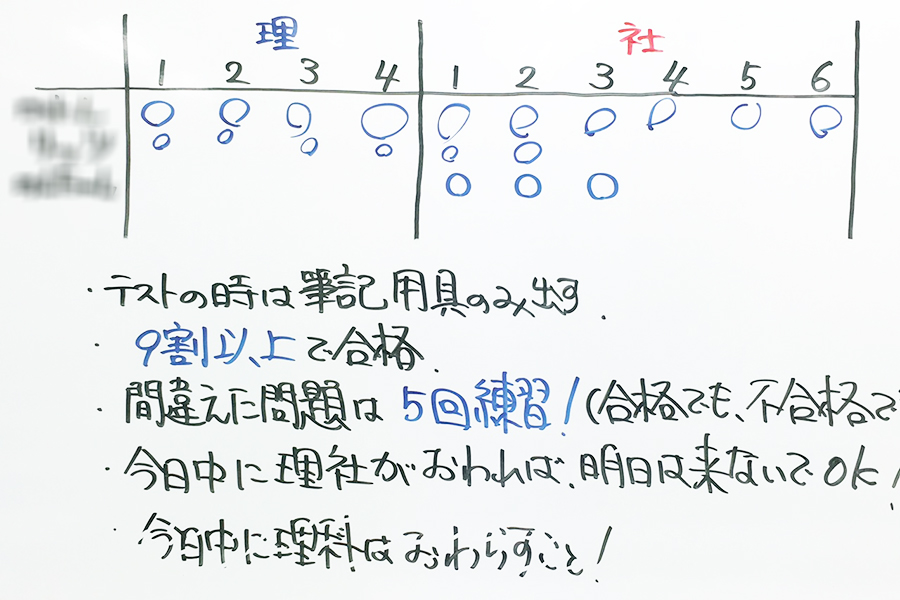 理 社
1 2 3 4 1 2 3 4 5 6
○ ○ ○ ○ ○ ○ ○ ○ ○ ○
○ ○ ○ ○ ○ ○
○ ○ ○
・テストの時は筆記用具のみ出す.
・9割以上で合格.
・間違えた問題は5回練習!(合格でも、不合格で
・今日中に理社がおわれば、明日は来ないでOK!
・今日中に理科はおわらすこと!